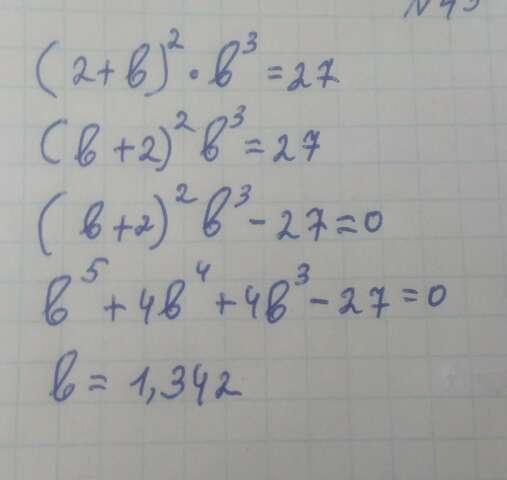 N43
(2+b)²·b³=27
(b+2)²b³=27
(b+2)²b³-27=0
b⁵+4b⁴+4b³-27=0
b=1,342